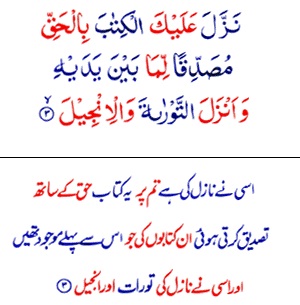 نَزَّلَ عَلَيْكَ الْكِتٰبَ بِالْحَقِّ
مُصَدِّقًا لِّمَا بَيْنَ يَدَيْهِ
وَاَنْزَلَ التَّوْرٰىةَ وَالْاِنْجِيْلَ ۙ﴿۳﴾
اسی نے نازل کی ہے تم پر یہ کتاب حق کے ساتھ
تصدیق کرتی ہوئی ان کتابوں کی جو اس سے پہلے موجود تھیں
اور اسی نے نازل کی تورات اور انجیل ﴿۳﴾